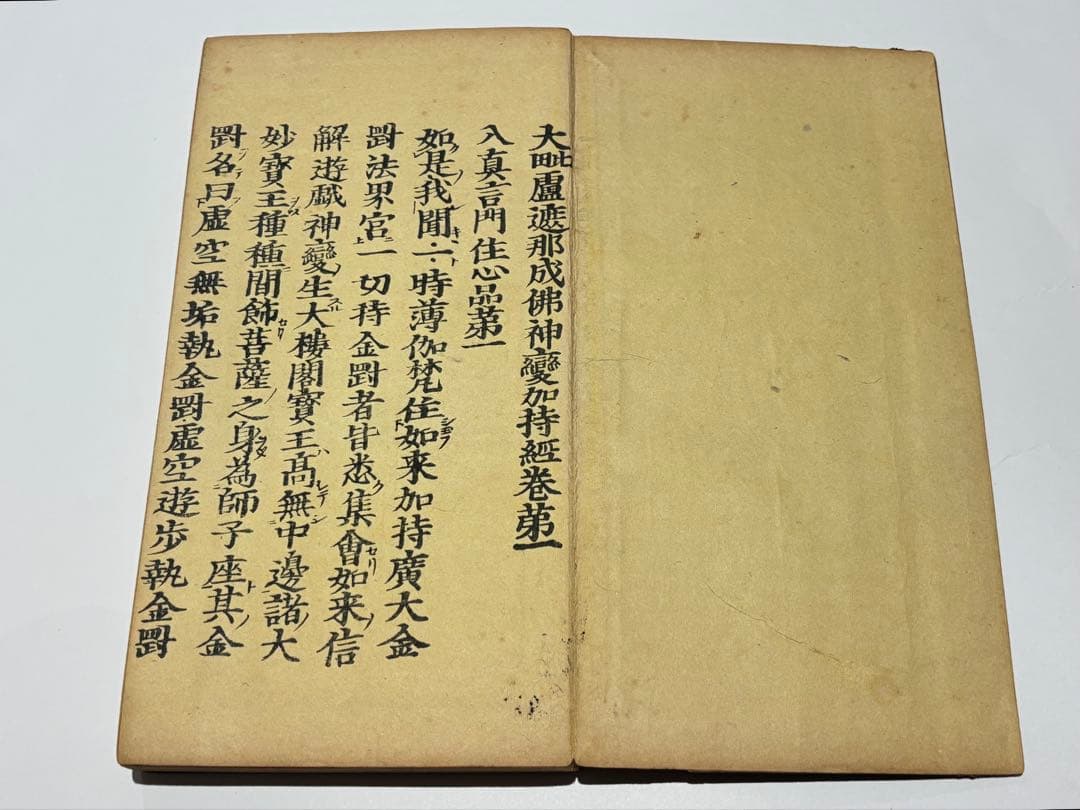 大毗盧遮那成佛神變加持經卷第一
入真言門住心品第一
如是我聞一時薄伽梵住如来加持廣大金
剛法界宮一切持金剛者皆悉集會如来信
解遊戲神變生大樓閣寶王高無中邊諸大
妙寶王種種間飾菩薩之身為師子座其金
剛名曰虛空無垢執金剛虛空遊步執金剛